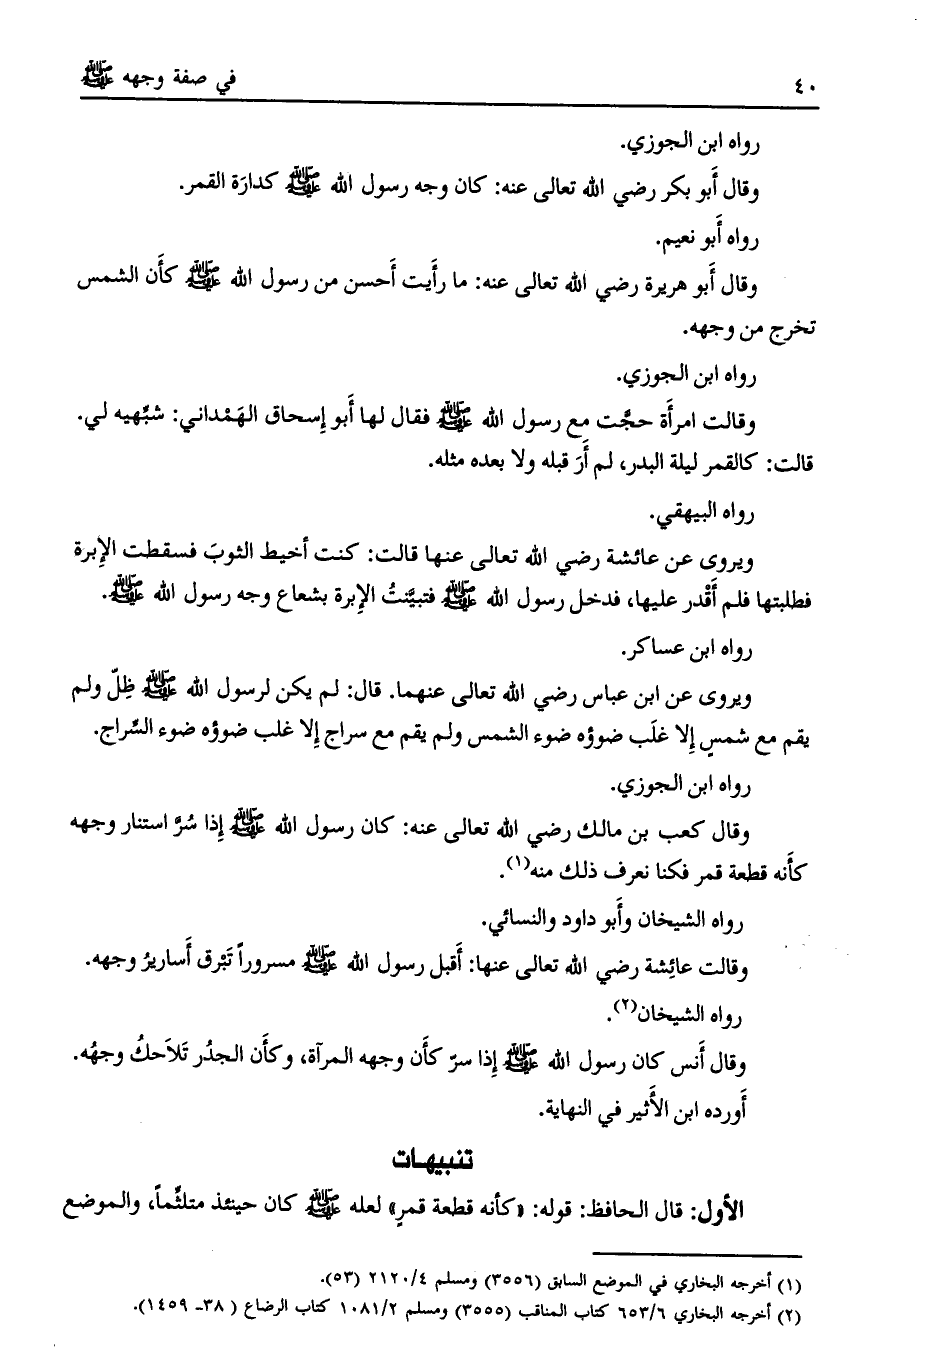 ٤٠ في صفة وجهه ﷺ
رواه ابن الجوزي.
وقال أَبو بكر رضي الله تعالى عنه: كان وجه رسول الله ﷺ كدارَة القمر.
رواه أَبو نعيم.
وقال أَبو هريرة رضي الله تعالى عنه: ما رأَيت أَحسن من رسول الله ﷺ كأَن الشمس
تخرج من وجهه.
رواه ابن الجوزي.
وقالت امرأَة حجَّت مع رسول الله ﷺ فقال لها أَبو إِسحاق الهَمْداني: شبِّهيه لي.
قالت: كالقمر ليلة البدر، لم أَرَ قبله ولا بعده مثله.
رواه البيهقي.
ويروى عن عائشة رضي الله تعالى عنها قالت: كنت أخيط الثوبَ فسقطت الإِبرة
فطلبتها فلم أَقْدر عليها، فدخل رسول الله ﷺ فتبيَّنتُ الإِبرة بشعاع وجه رسول الله ﷺ.
رواه ابن عساكر.
ويروى عن ابن عباس رضي الله تعالى عنهما. قال: لم يكن لرسول الله ﷺ ظِلّ ولم
يقم مع شمسٍ إِلا غلَب ضوؤه ضوء الشمس ولم يقم مع سراج إِلا غلب ضوؤه ضوء السِّراج.
رواه ابن الجوزي.
وقال كعب بن مالك رضي الله تعالى عنه: كان رسول الله ﷺ إِذا سُرَّ استنار وجهه
كأَنه قطعة قمر فكنا نعرف ذلك منه(١).
رواه الشيخان وأَبو داود والنسائي.
وقالت عائِشة رضي الله تعالى عنها: أَقبل رسول الله ﷺ مسروراً تَبْرق أَساريرُ وجهه.
رواه الشيخان(٢).
وقال أَنس كان رسول الله ﷺ إِذا سرّ كأَن وجهه المرآة، وكأَن الجدُر تَلاَحكُ وجهُه.
أَورده ابن الأَثير في النهاية.
تنبيهات
الأول: قال الحافظ: قوله: «كأنه قطعة قمرٍ» لعله ﷺ كان حينئذ متلثِّماً، والموضع
(١) أخرجه البخاري في الموضع السابق (٣٥٥٦) ومسلم ٢١٢٠/٤ (٥٣).
(٢) أخرجه البخاري ٦٥٣/٦ كتاب المناقب (٣٥٥٥) ومسلم ١٠٨١/٢ كتاب الرضاع (٣٨- ١٤٥٩).